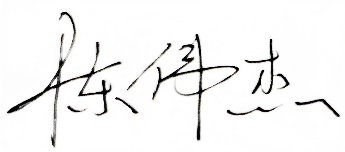 陈伟杰